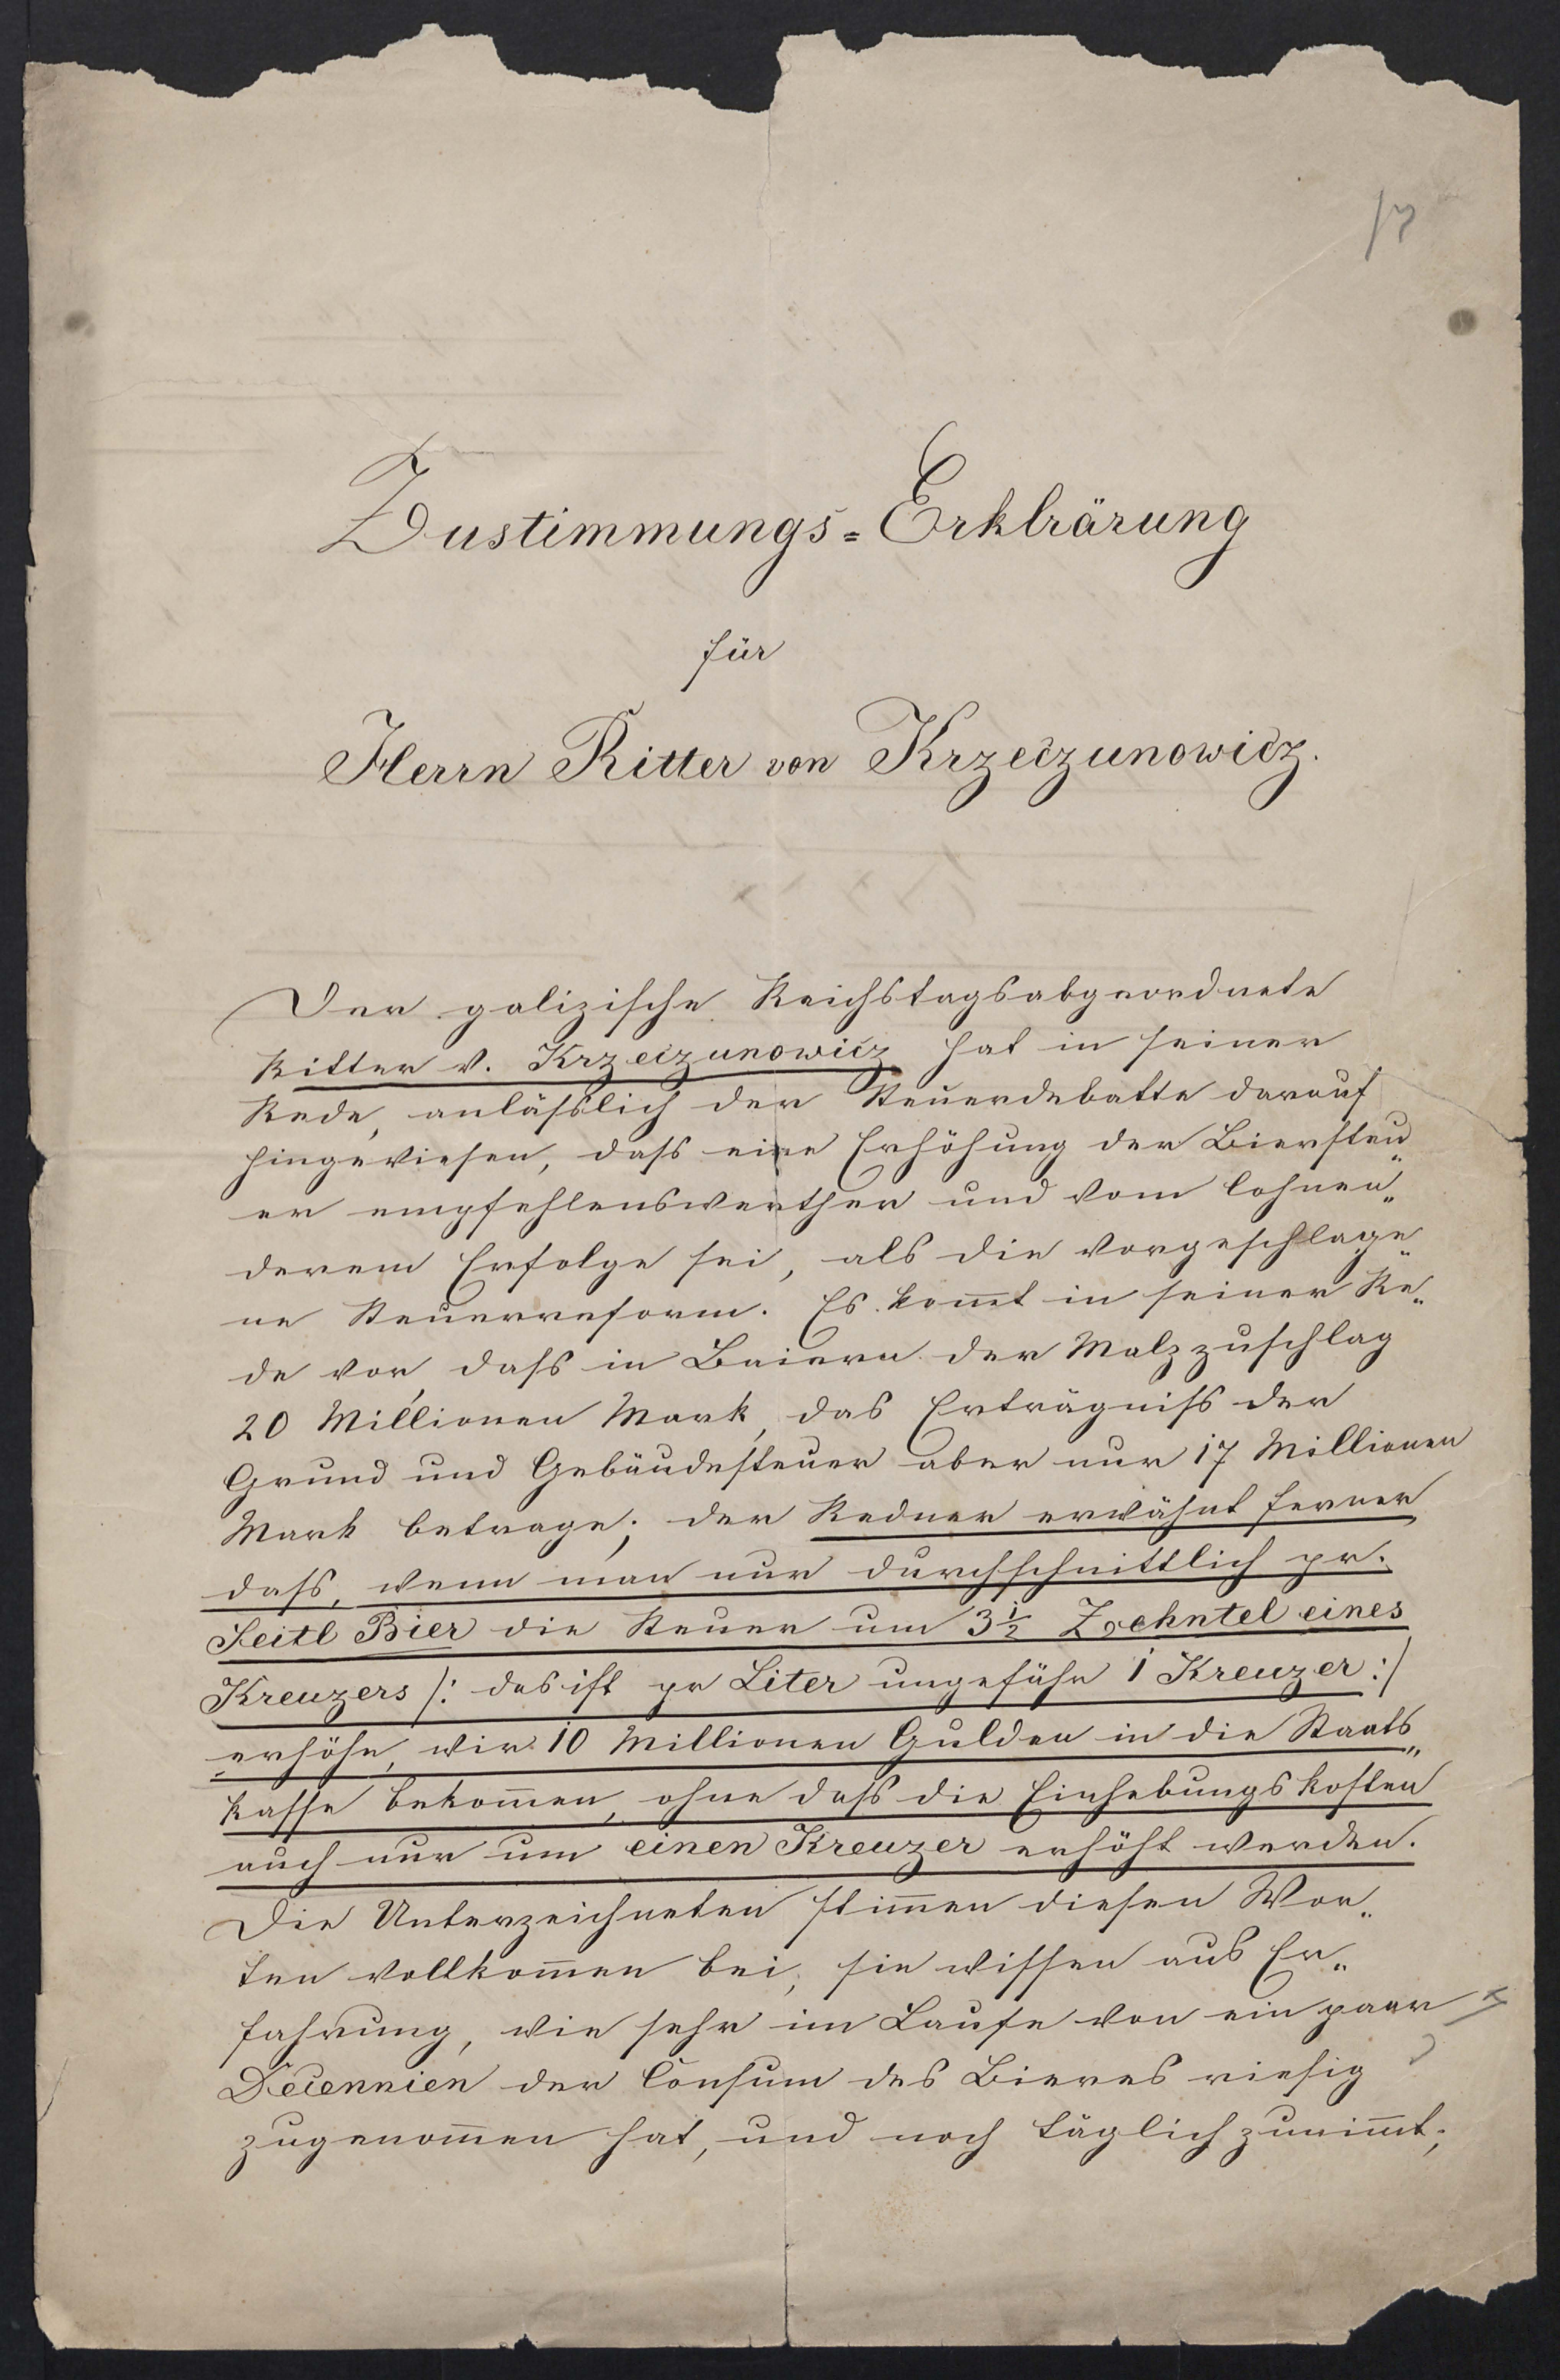 17
Zustimmungs=Erklrärung
für
Herrn Ritter von Krzeczunowicz.
Der galizische Reichstagsabgeordnete
Ritter v. Krzeczunowicz hat in seiner
Rede, anläßlich der Steuerdebatte darauf
hingewiesen, daß eine Erhöhung der Biersteu„
er empfehlenswerther und vom lohnen„
derem Erfolge sei, als die vorgeschlage„
ne Steuerreform. Es kom̄t in seiner Re„
de vor, daß in Baiern der Malzzuschlag
20 Millionen Mark, das Erträgniß der
Grund und Gebäudesteuer aber nur 17 Millionen
Mark betrage; der Redner erwähnt ferner
daß, wenn man nur durchschnittlich pr.
Seitl Bier die Steuer um 3½ Zehntel eines
Kreuzers /: das ist pr Liter ungefähr 1 Kreuzer :/
erhöhe, wir 10 Millionen Gulden in die Staats„
kasse bekom̄en, ohne daß die Einhebungskosten
auch nur um einen Kreuzer erhöht werden.
Die Unterzeichneten stim̄en diesen Wor„
ten vollkom̄en bei, sie wissen aus Er„
fahrung, wie sehr im Laufe von ein paar
Decennien der Consum des Bieres riesig
zugenom̄en hat, und noch täglich zunim̄t;